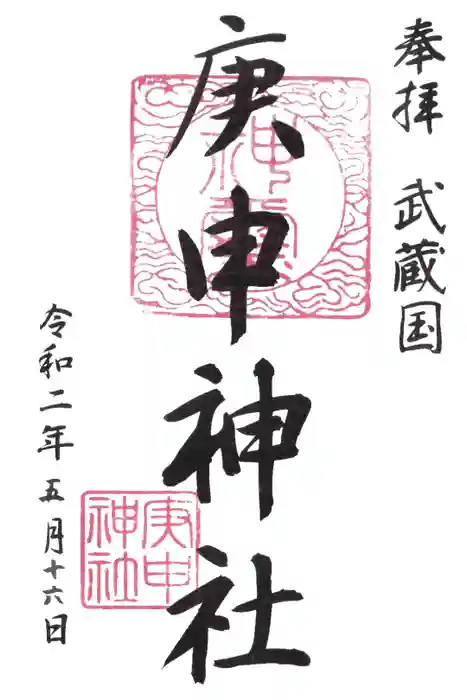 奉拝 武蔵国
庚申神社
神璽
庚申
神社
令和二年五月十六日